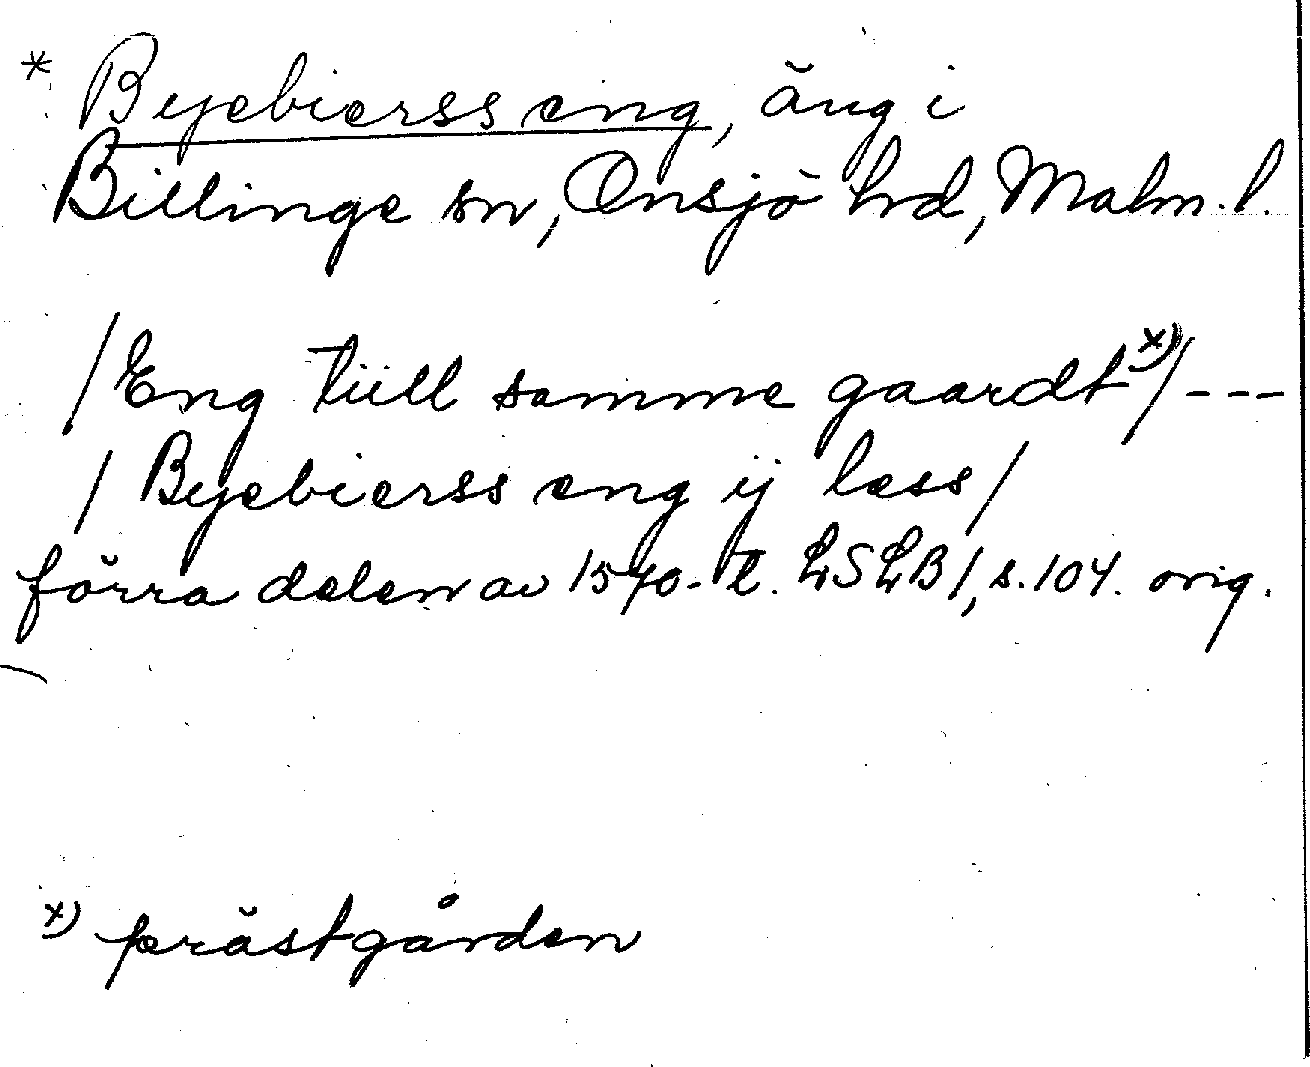 * Byebierss eng, äng i
Billinge sn, Onsjö hrd, Malm. l.
/Eng tiill samme gaardt x)/ ---
/ Byebierss eng ij less/
förra delen av 1540-t. LSLB 1, s. 104. orig.
x) prästgården